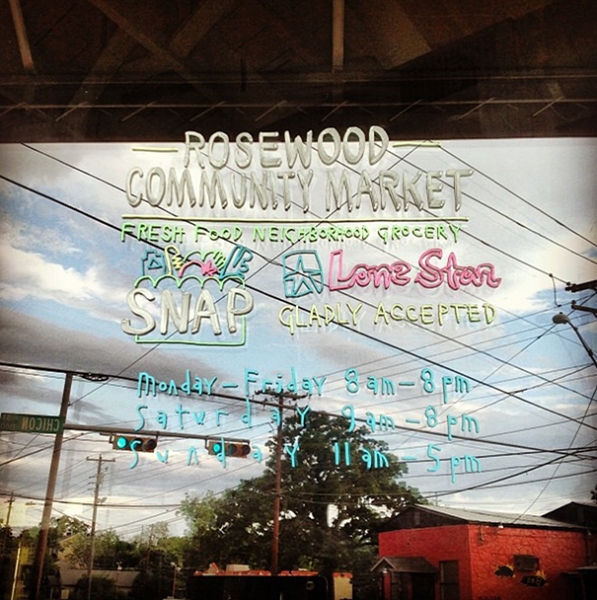 ROSEWOOD
COMMUNITY MARKET
FRESH FOOD NEIGHBORHOOD GROCERY
SNAP
Lone Star
GLADLY ACCEPTED
Monday-Friday 8am-8pm
Saturday 9am-8pm
Sunday 11am-5pm
CHICON